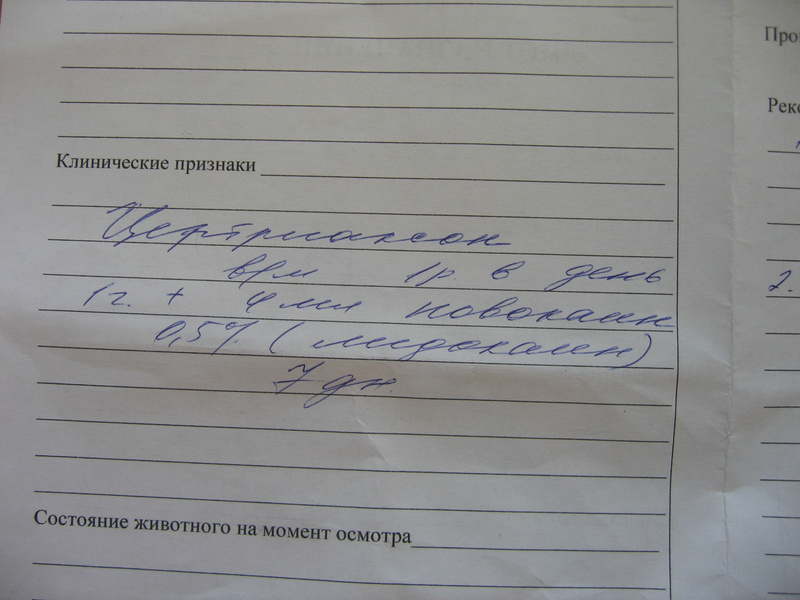 Про
Реко
Клинические признаки
Цефтриаксон
в/м 1р. в день
1г. + 4мл новокаин
0,5% (лидокаин)
7 дн.
2.
Состояние животного на момент осмотра